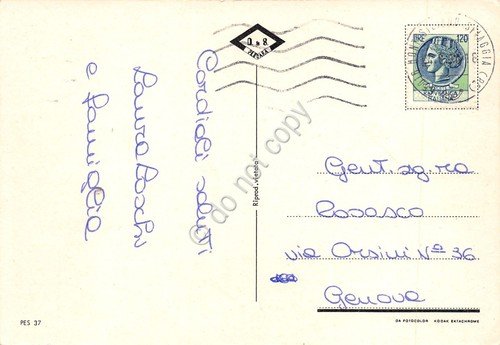 Cordiali saluti
Laura Boschi
e famiglia
Gent. sg. ra
Rosasco
via Orsini Nº 36
Genova
Riprod. vietata
120
PES 37
DA FOTOCOLOR KODAK EKTACHROME
do not copy